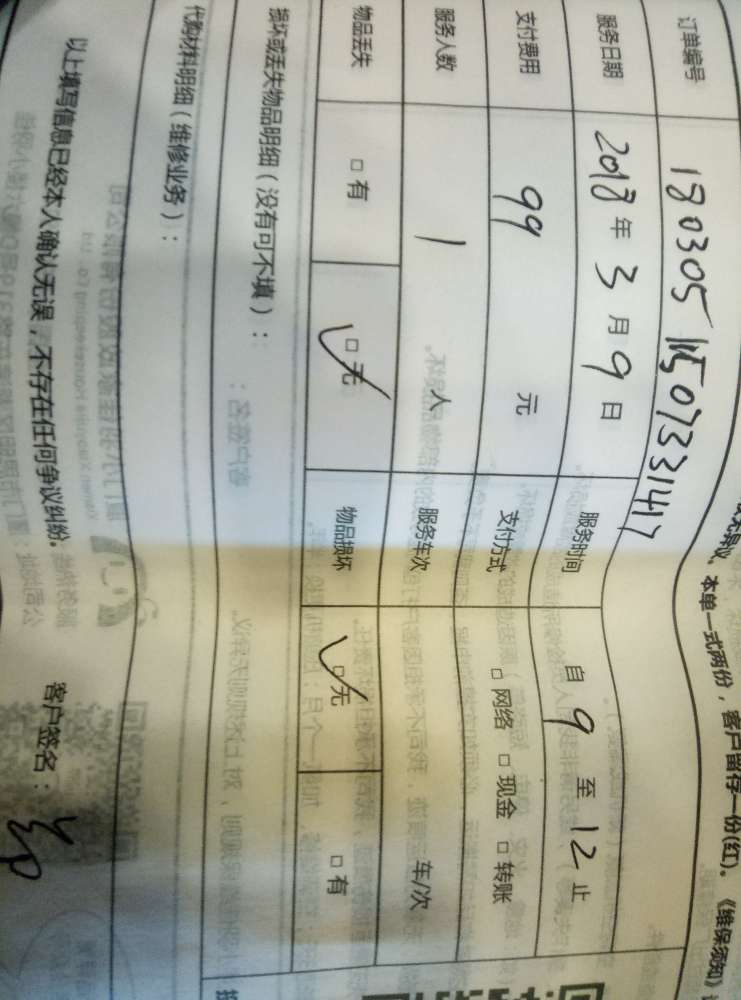 本单一式两份，客户留存一份(红)。《维保须知》
订单编号 180305 115073331417
服务日期 2018 年 3 月 9 日 服务时间 自 9 至 12 止
支付费用 99 元 支付方式 □ 网络 □ 现金 □ 转账
服务人数 1 人 服务车次 车/次
物品丢失 □ 有 □ 无 物品损坏 □ 无 □ 有
损坏或丢失物品明细（没有可不填）：
代购材料明细（维修业务）：
以上填写信息已经本人确认无误，不存在任何争议纠纷。 客户签名：